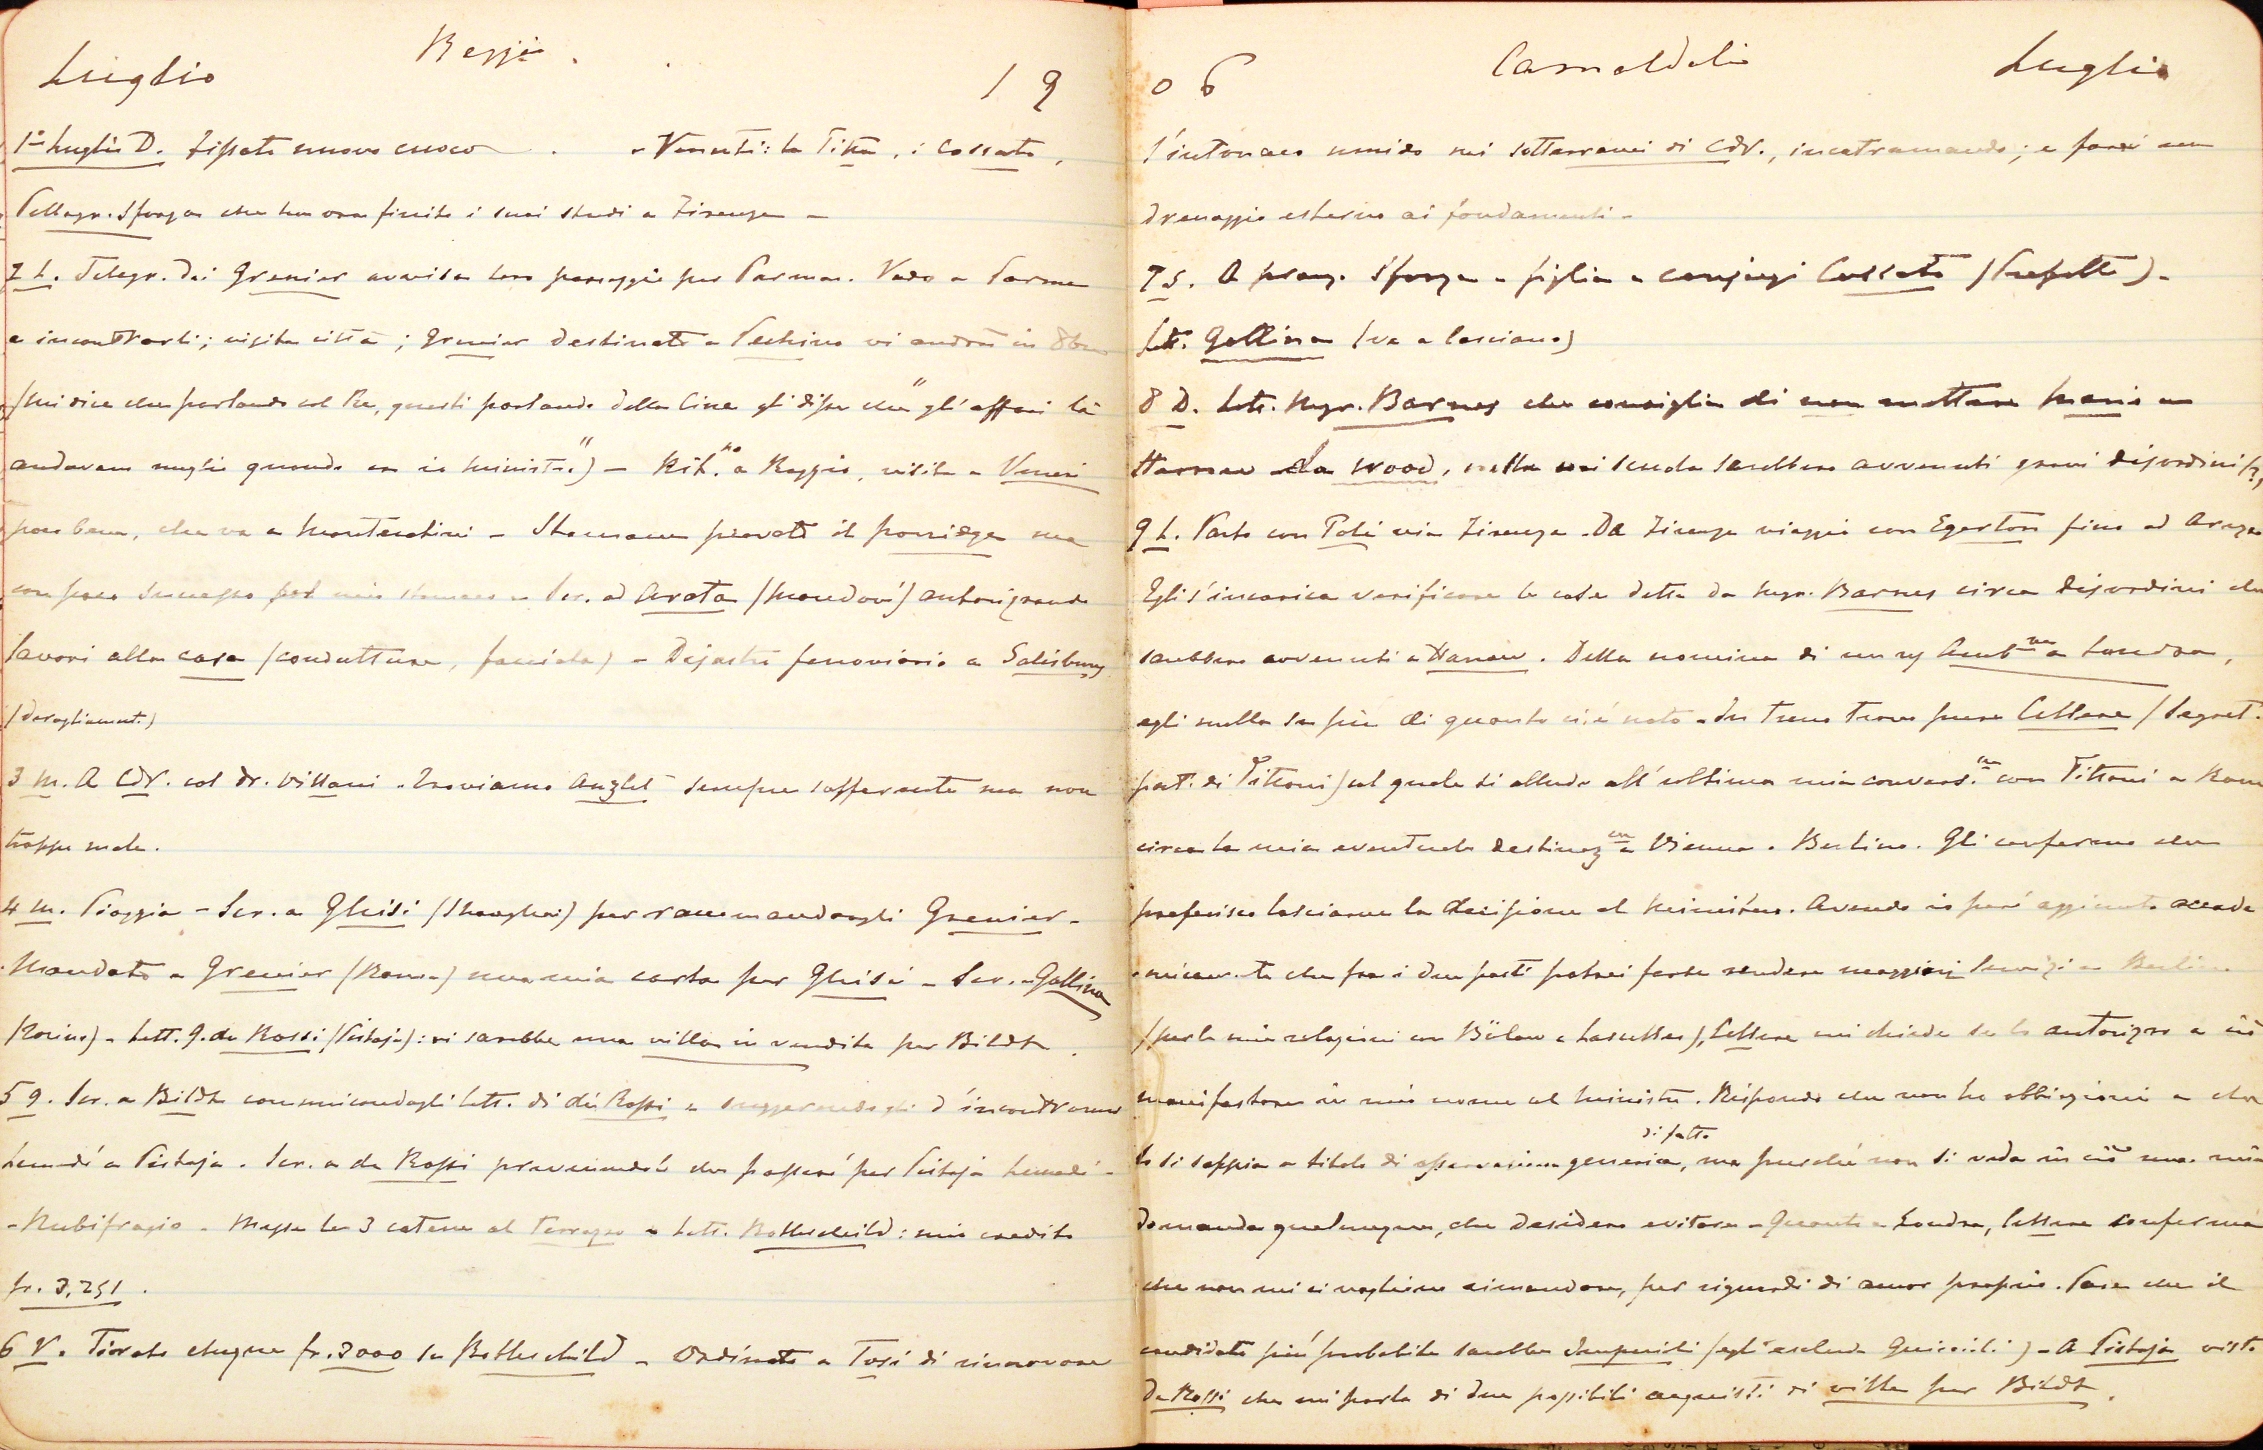 Luglio Reggio. 19
1º Luglio D. Fissato nuovo cuoco. - Venuti: la Titta, i Cossato,
Pellegr. Sforza che ha ora finito i suoi studi a Firenze -
2 L. Telegr. dei Grenier avvisa loro passaggio per Parma. Vado a Parma
a incontrarli; visita città; Grenier destinato a Pechino vi andrà in 8bre
(mi dice che parlando col Re, questi parlando della Cina gli disse che "gli affari là
andavano meglio quando era io ministro") - Rit.no a Reggio, visita a Veneri
poco bene, che va a Montecatini - Stamane provato il porridge ma
con poco successo pel mio stomaco - Scr. ad Arata (Mondovì) autorizzando
lavori alla casa (condutture, facciata) - Disastro ferroviario a Salisbury
(deragliament.)
3 M. A CdV. col dr. Villani. Troviamo Anzlet sempre sofferente ma non
troppo male.
4 M. Pioggia - Scr. a Ghisi (Shanghai) per raccomandargli Grenier -
Mandato a Grenier (Roma) una mia carta per Ghisi - Scr. a Gallina
(Torino) - Lett. G. de Rossi (Pistoja): vi sarebbe una villa in vendita per Bildt.
5 G. Scr. a Bildt comunicandogli lett. di de Rossi e suggerendogli d'incontrarmi
Lunedì a Pistoja. Scr. a de Rossi prevenendolo che passerò per Pistoja Lunedì -
- Nubifragio - Messe le 3 catene al terrazzo - Lett. Rothschild: mio credito
fr. 3,251.
6 V. Tirato cheque fr. 3000 su Rothschild - Ordinato a Tosi di rinnovare
06 Camaldoli Luglio
l'intonaco umido nei sotterranei di CdV., incatramando; e farci un
drenaggio esterno ai fondamenti -
7 S. A pranzo Sforza e figlia e conjugi Cossato (Prefetto) -
Lett. Gallina (va a Casciano)
8 D. Lett. Mgr. Barnes che consiglia di non mettere Mario a
Harrow da Wood, nella cui scuola sarebbero avvenuti gravi disordini (?)
9 L. Parto con Polì via Firenze. Da Firenze viaggio con Egerton fino ad Arezzo
Egli s'incarica verificare le cose dette da Mgr. Barnes circa disordini che
sarebbero avvenuti a Harrow. Della nomina di un Amb.re a Londra,
egli nulla sa più di quanto ci è noto - In treno trovo pure Cellere (Segret.
part. di Tittoni) col quale si allude all'ultima mia convers.ne con Tittoni a Roma
circa la mia eventuale destinaz.ne a Vienna o Berlino. Gli confermo che
preferisco lasciarne la decisione al Ministero. Avendo io però aggiunto
che fra i due posti potrei forse rendere maggiori servizi a Berlino
(per le mie relazioni con Bülow e Lascelles), Cellere mi chiede se lo autorizzo a ciò
manifestare in mio nome al Ministro. Rispondo che non ho obbiezioni a che
lo si sappia a titolo di osservazione generica, di fatto ma purché non si veda in ciò una mia
domanda qualunque, che desidero evitare - Quanto a Londra, Cellere conferma
che non mi ci vogliono rimandare, per riguardi di amor proprio. Pare che il
candidato più probabile sarebbe Imperiali (egli esclude Guiccioli) - A Pistoja visto
De Rossi che mi parla di due possibili acquisti di ville per Bildt.